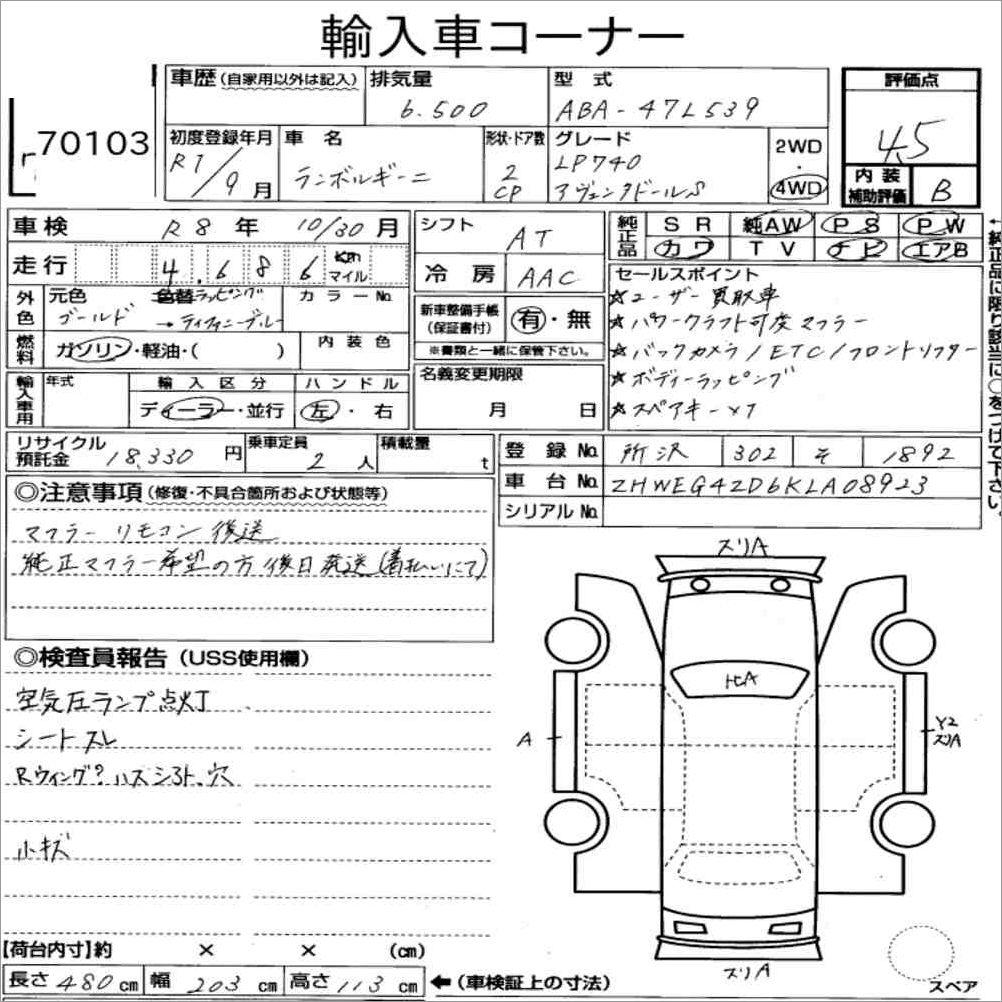 輸入車コーナー
70103
車歴(自家用以外は記入)
排気量
6.500
型式
ABA-47L539
評価点
4.5
初度登録年月
R1/9月
車名
ランボルギーニ
形状・ドア数
2
CP
グレード
LP740
アヴェンタドールS
2WD
・
4WD
内装
補助評価
B
車検 R8年 10/30月
走行 4.686 km マイル
外色
元色
ゴールド
色替ラッピング
→ティファニーブルー
カラーNo.
燃料
ガソリン・軽油・( )
内装色
輸入車用
年式
輸入区分
ディーラー・並行
ハンドル
左・右
シフト
AT
冷房
AAC
新車整備手帳
(保証書付)
有・無
※書類と一緒に保管下さい。
名義変更期限
月 日
純正品
SR 純AW PS PW
カワ TV ナビ エアB
セールスポイント
☆ユーザー買取車
☆パワークラフト可変マフラー
☆バックカメラ/ETC/フロントリフター
☆ボディーラッピング
☆スペアキー×1
リサイクル
預託金
18,330円
乗車定員
2人
積載量
t
登録No.
所沢 302 そ 1892
車台No.
ZHWEG4ZD6KLA08923
シリアルNo.
◎注意事項(修復・不具合箇所および状態等)
マフラーリモコン後送
純正マフラー希望の方後日発送(着払いにて)
◎検査員報告(USS使用欄)
空気圧ランプ点灯
シートスレ
Rウィング?ハズシ3ト、穴
小キズ
スリA
A
Y2
スリA
スリA
スペア
【荷台内寸】約 × × (cm)
長さ480cm 幅203cm 高さ113cm ←(車検証上の寸法)